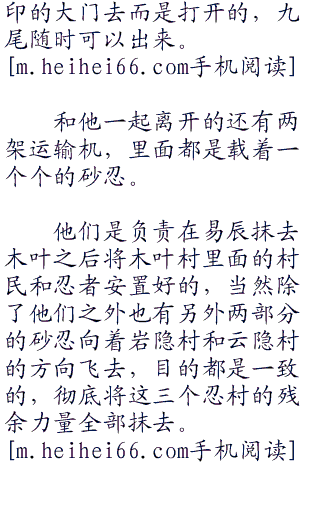 印的大门去而是打开的，九
尾随时可以出来。
[m.heihei66.com手机阅读]
和他一起离开的还有两
架运输机，里面都是载着一
个个的砂忍。
他们是负责在易辰抹去
木叶之后将木叶村里面的村
民和忍者安置好的，当然除
了他们之外也有另外两部分
的砂忍向着岩隐村和云隐村
的方向飞去，目的都是一致
的，彻底将这三个忍村的残
余力量全部抹去。
[m.heihei66.com手机阅读]